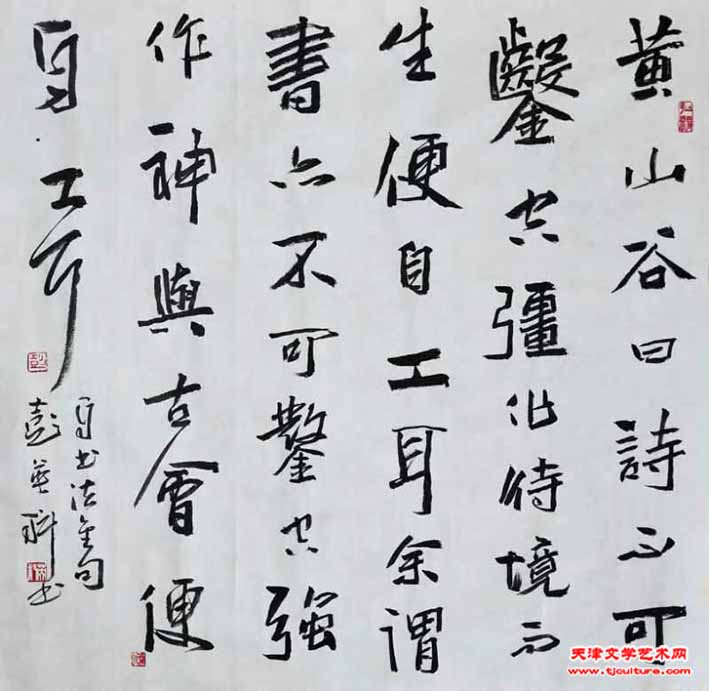 黄山谷曰詩不可
鑿空彊作待境而
生便自工耳余謂
書亦不可鑿空強
作神與古會便
自工耳
书法金句
彭英科书
天津文学艺术网
www.tjculture.com